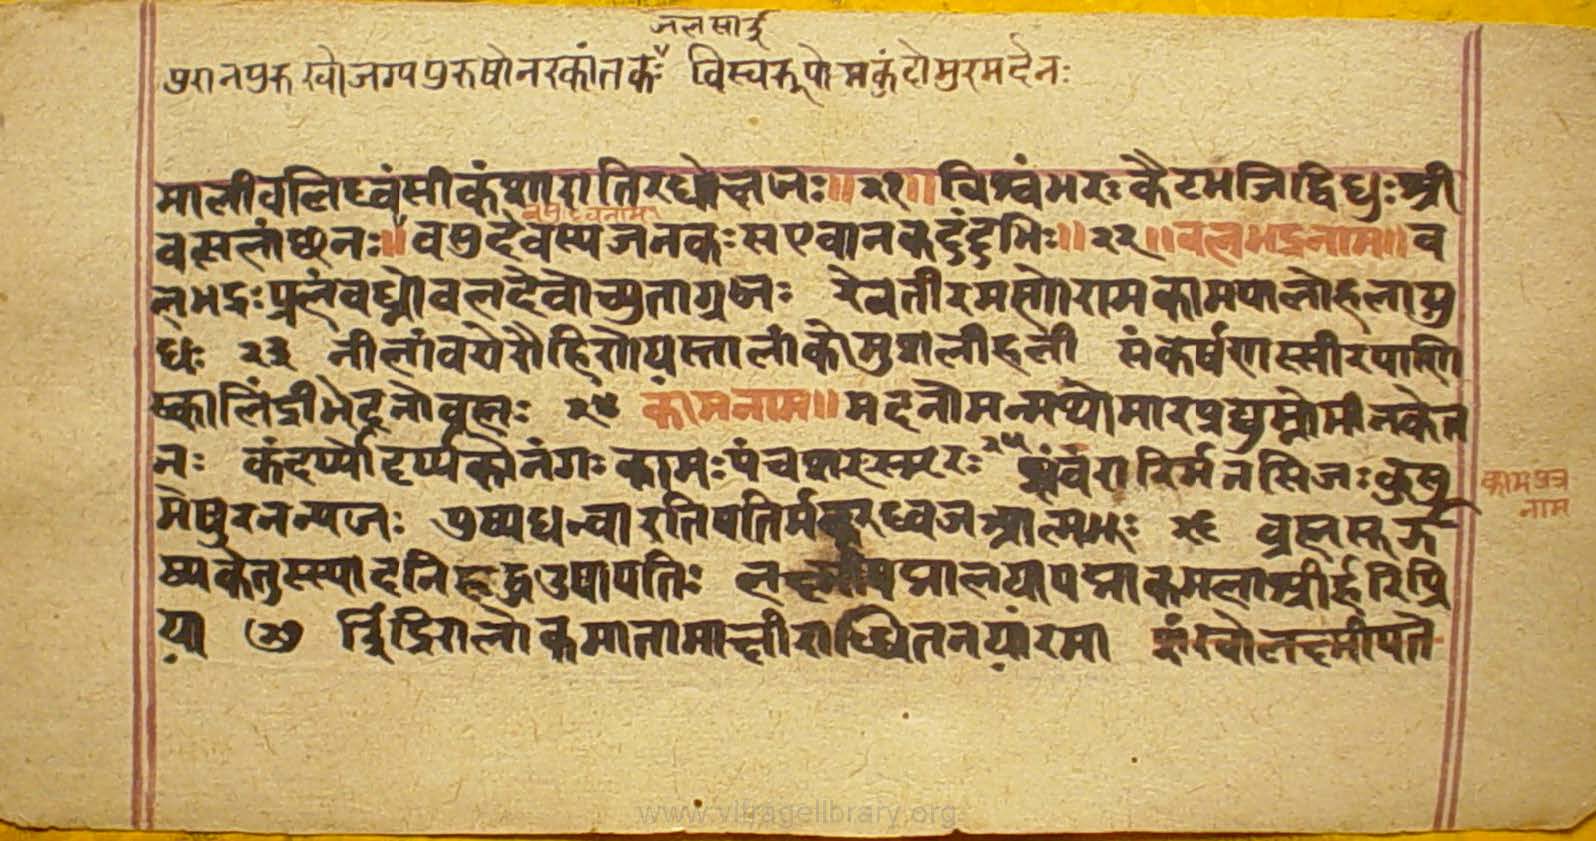 जलसाई
पुरानपुरुखोजग्यपुरुषोनरकांतकः विस्वरूपो मकुंदोमुरमर्दनः
मालीवलिध्वंसीकंशारातिरधोक्षजः॥२१॥विश्वंभरःकैटभजिद्विधुः श्री
वत्सलांछनः॥वसुदेवस्यजनकःसएवानकदुंदुभिः॥२२॥वलभद्रनाम॥व
वसुदेवनाम
लभद्रःप्रलंवघ्नोवलदेवोच्युताग्रजः रेवतीरमणोरामकामपालोहलायु
धः २३ नीलांवरोरौहिणेयस्तालांकोमुशलीहली संकर्षणस्सीरपाणि
ष्कालिंद्रीभेदनोवलः २४ कामनाम॥मदनोमन्मथोमारप्रद्युम्नोमीनकेत
नः कंदर्प्पोदर्प्पकोनंगः कामःपंचशरस्मरः २५ शंवरारिर्मनसिजःकुसु
कामपुत्र
नाम
मेषुरनन्यजः पुष्पधन्वारतिपतिर्मकरध्वजआत्मभूः २६ व्रह्मसूरृ
ष्यकेतुस्स्यादनिरुद्धउषापतिः लक्ष्मीपद्मालयापद्माकमलाश्रीर्हरिप्रि
या २७ इंदिरालोकमातामाक्षीराब्धितनयारमा शंखोलक्ष्मीपते
www.vitragelibrary.org